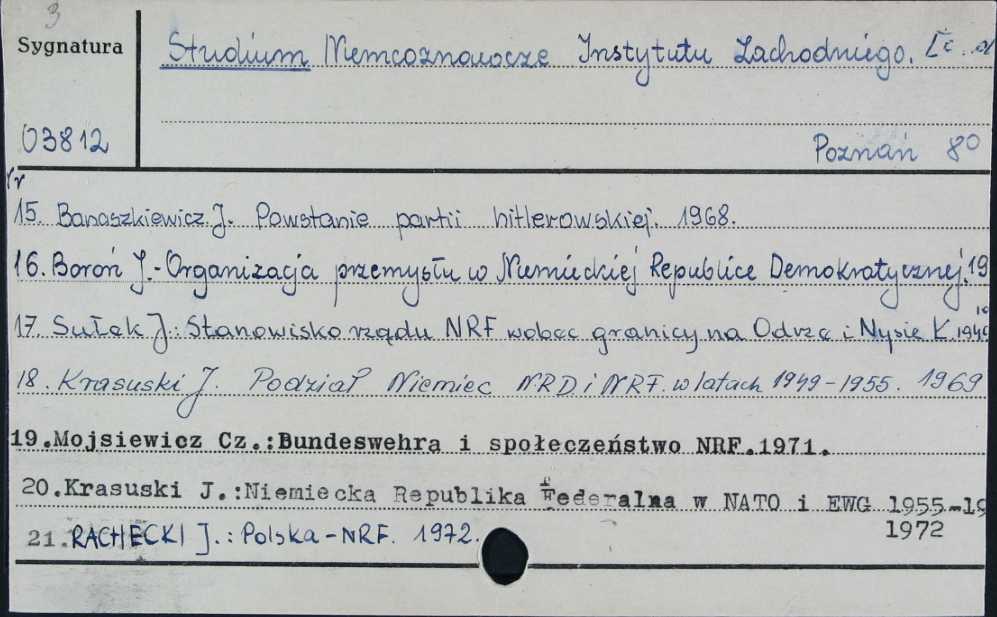 3
Sygnatura
Studium Niemcoznawcze Instytutu Zachodniego. [c. d
03812
Poznań 8°
Nr
15. Banaszkiewicz J. Powstanie partii hitlerowskiej. 1968.
16. Boroń J.- Organizacja przemysłu w Niemieckiej Republice Demokratycznej. 19
17. Sułek J.: Stanowisko rządu NRF wobec granicy na Odrze i Nysie Ł. 1949
18. Krasuski J. Podział Niemiec NRD i NRF. w latach 1949-1955. 1969
19.Mojsiewicz Cz.:Bundeswehra i społeczeństwo NRF.1971.
20.Krasuski J.:Niemiecka Republika Federalna w NATO i EWG 1955-19
1972
21. RACHECKI J.: Polska-NRF. 1972.